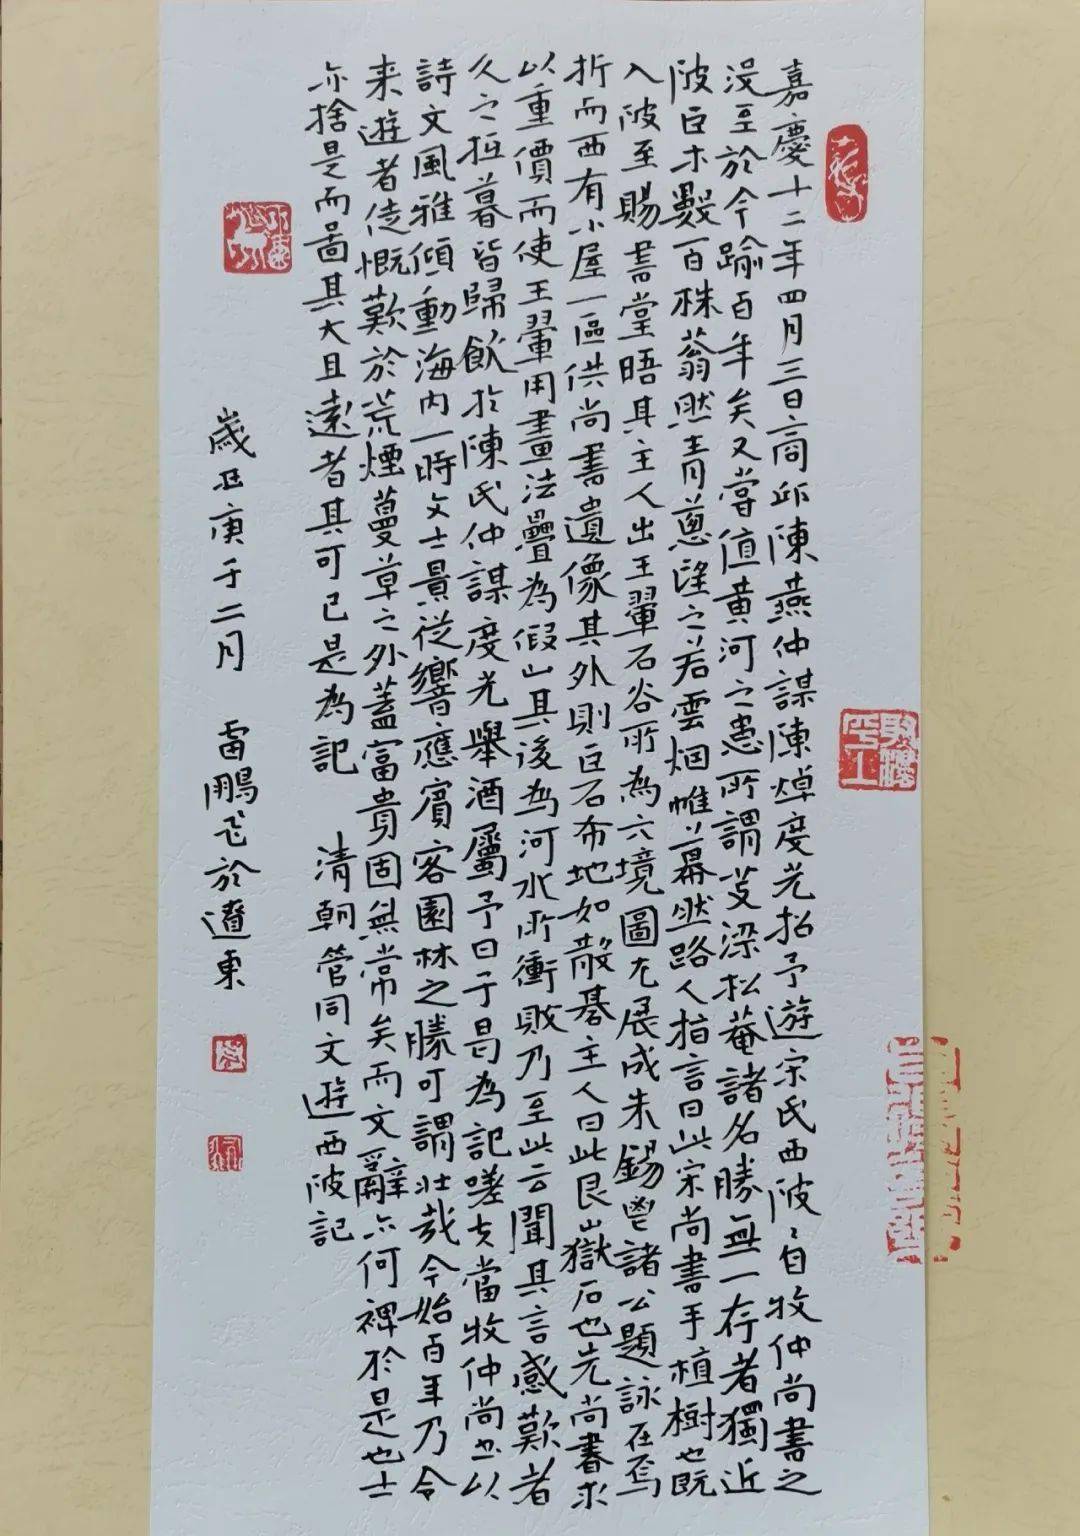 嘉慶十二年四月三日商邱陳燕仲謀陳焯度光招予遊宋氏西陂〻自牧仲尚書之
沒至於今踰百年矣又嘗值黃河之患所謂芰梁松菴諸名勝無一存者獨近
陂巨木數百株蓊然青蔥望之若雲烟帷幕然路人指言曰此宋尚書手植樹也既
入陂至賜書堂晤其主人出王翬石谷所為六境圖尤展成朱錫鬯諸公題詠在焉
折而西有小屋一區供尚書遺像其外則巨石布地如散碁主人曰此艮山嶽石也先尚書求
以重價而使王翬用畫法疊為假山其後為河水所衝敗乃至此云聞其言感歎者
久之抵暮皆歸飲於陳氏仲謀度光舉酒屬予曰子曷為記嗟夫當牧仲尚書以
詩文風雅傾動海內一時文士景從響應賓客園林之勝可謂壯哉今始百年乃令
来遊者徒慨歎於荒煙蔓草之外蓋富貴固無常矣而文辭亦何裨於是也士
亦捨是而圖其大且遠者其可已是為記　清朝管同文遊西陂記
歲在庚子二月　雷鵬飞於遼東